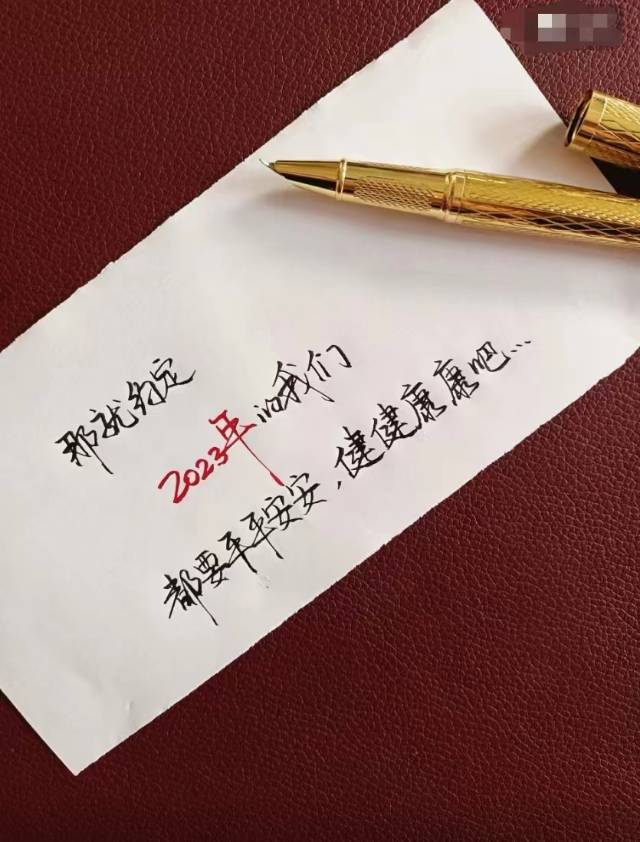 那就约定
2023年的我们
都要平平安安，健健康康吧…